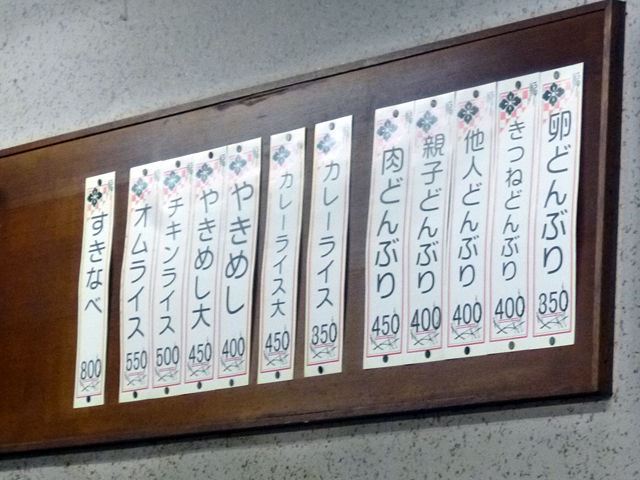 卵どんぶり 350
きつねどんぶり 400
他人どんぶり 400
親子どんぶり 400
肉どんぶり 450
カレーライス 350
カレーライス大 450
やきめし 400
やきめし大 450
チキンライス 500
オムライス 550
すきなべ 800